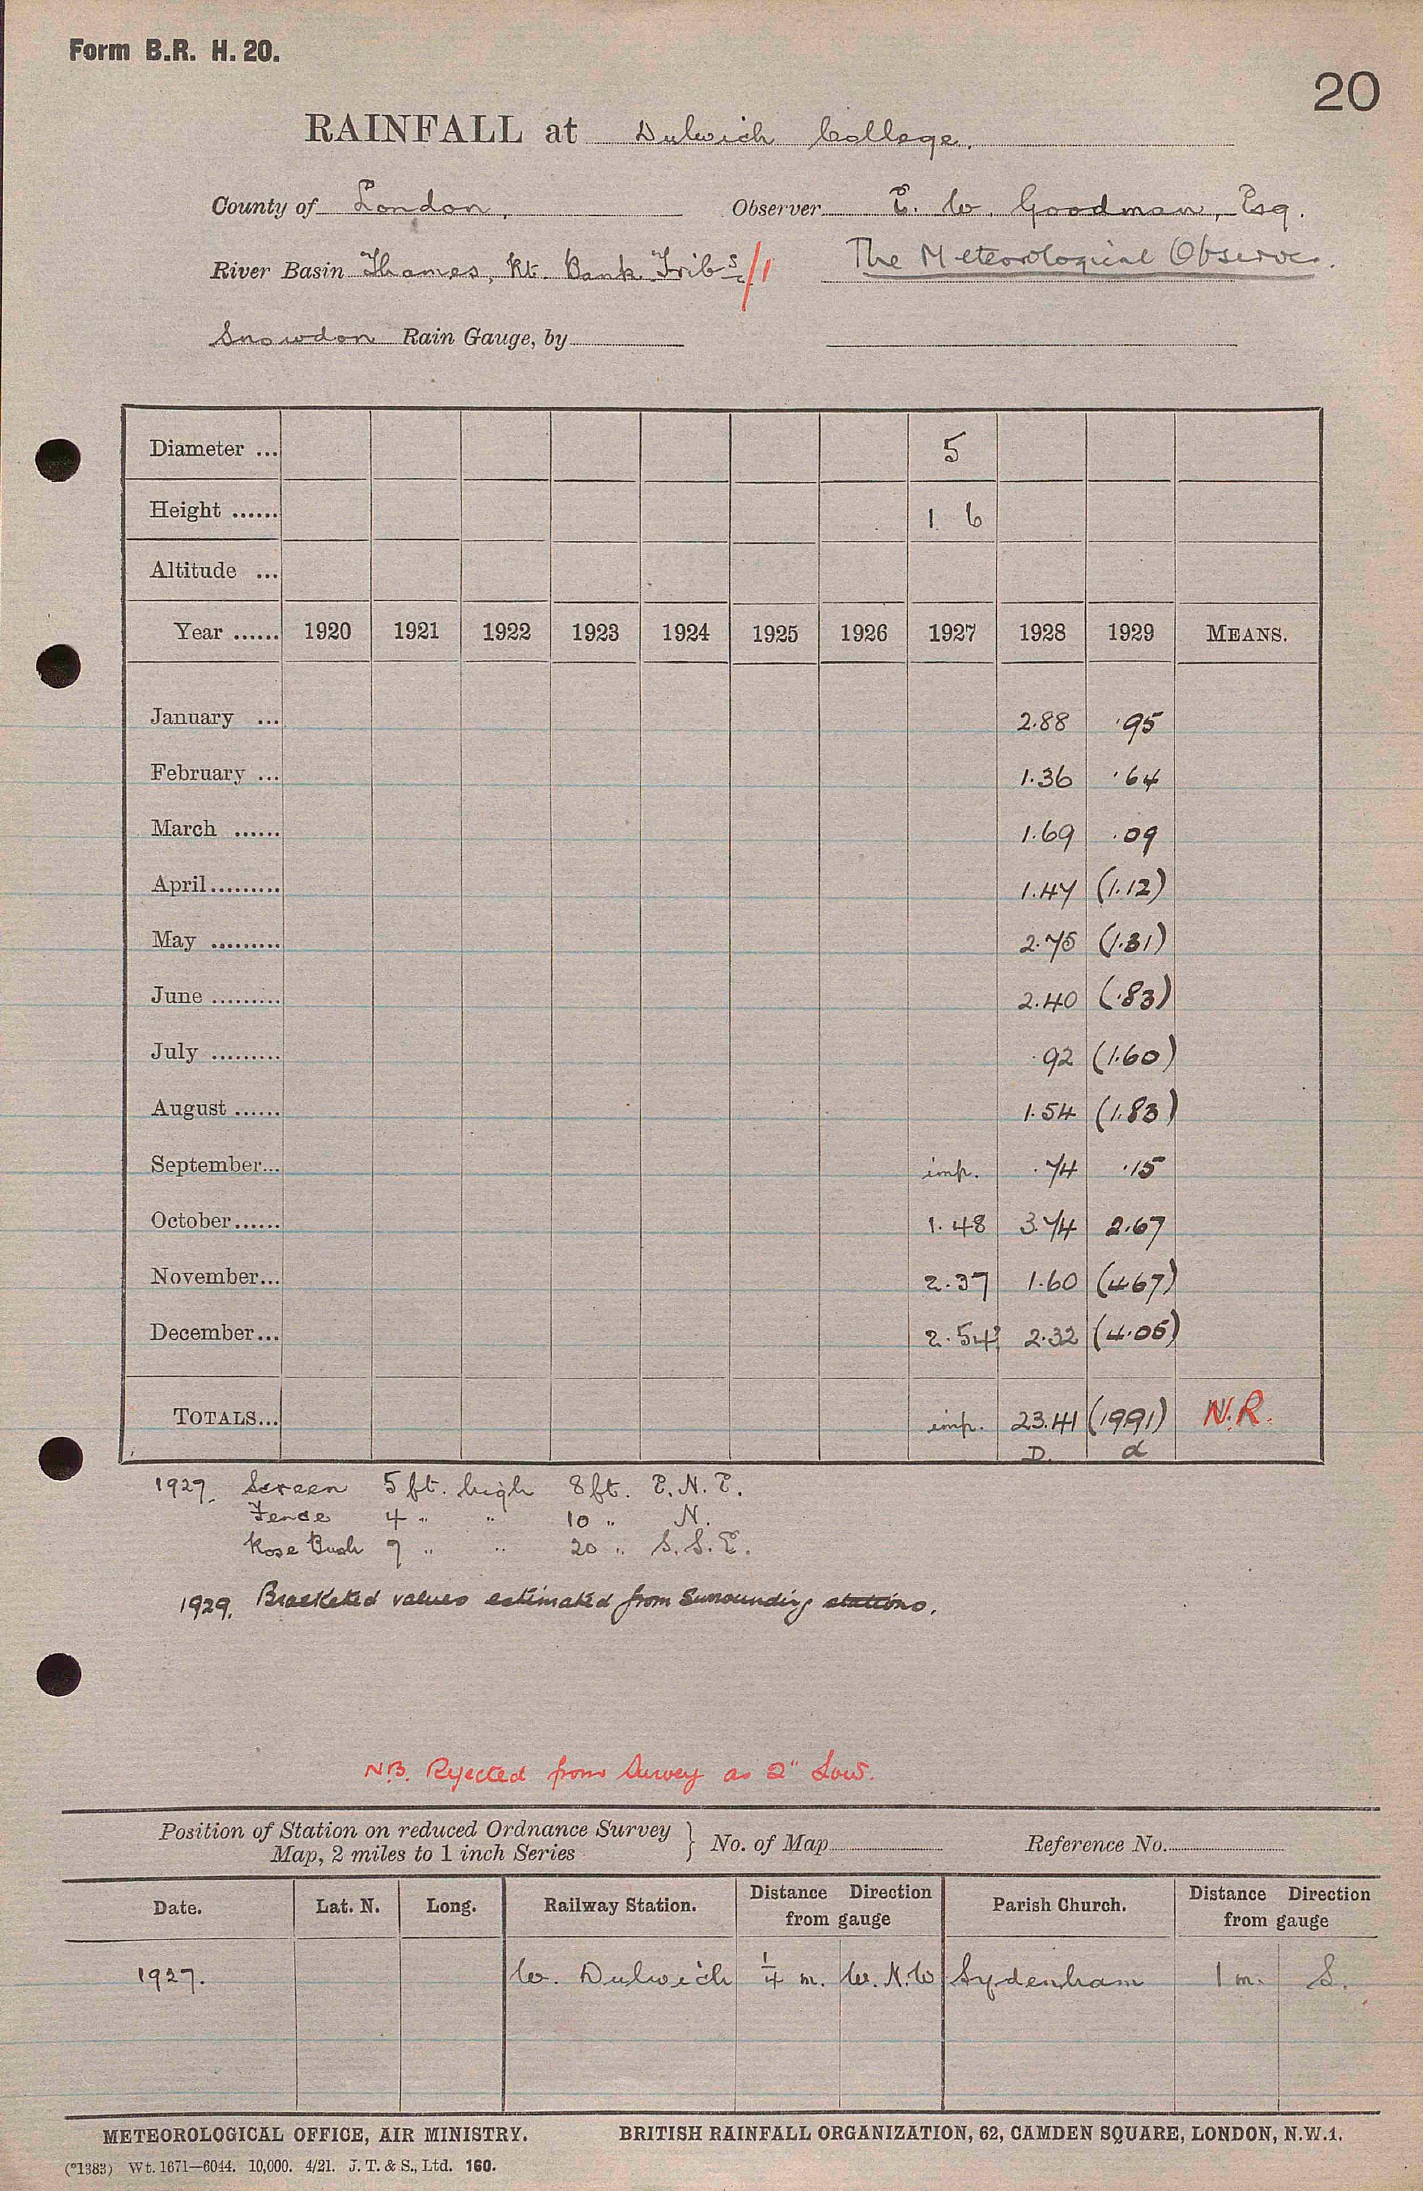 Form B.R. H. 20.
20
RAINFALL at Dulwich College.
County of London, Observer E. W. Goodman, Esq.
River Basin Thames, Rt. Bank Tribs /1 The Meteorological Observer.
Snowdon Rain Gauge, by
Diameter ... 5
Height ...... 1 6
Altitude ...
Year ...... 1920 1921 1922 1923 1924 1925 1926 1927 1928 1929 MEANS.
January ... 2.88 .95
February ... 1.36 .64
March ...... 1.69 .09
April......... 1.47 (1.12)
May ......... 2.75 (1.31)
June ......... 2.40 (.83)
July ......... .92 (1.60)
August ...... 1.54 (1.83)
September... imp. .74 .15
October...... 1.48 3.74 2.67
November... 2.37 1.60 (4.67)
December... 2.54 2.32 (4.05)
TOTALS... imp. 23.41 (19.91) N.R.
D. d
1927. Screen 5 ft. high 8 ft. E.N.E.
Fence 4 " " 10 " N.
Rose Bush 7 " " 20 " S.S.E.
1929. Bracketed values estimated from surrounding stations.
N.B. Rejected from Survey as 2" Low.
Position of Station on reduced Ordnance Survey
Map, 2 miles to 1 inch Series } No. of Map Reference No.
Date. Lat. N. Long. Railway Station. Distance Direction from gauge Parish Church. Distance Direction from gauge
1927. W. Dulwich 1/4 m. W.N.W Sydenham 1 m. S.
METEOROLOGICAL OFFICE, AIR MINISTRY. BRITISH RAINFALL ORGANIZATION, 62, CAMDEN SQUARE, LONDON, N.W.1.
(*1383) Wt. 1671—6044. 10,000. 4/21. J. T. & S., Ltd. 160.